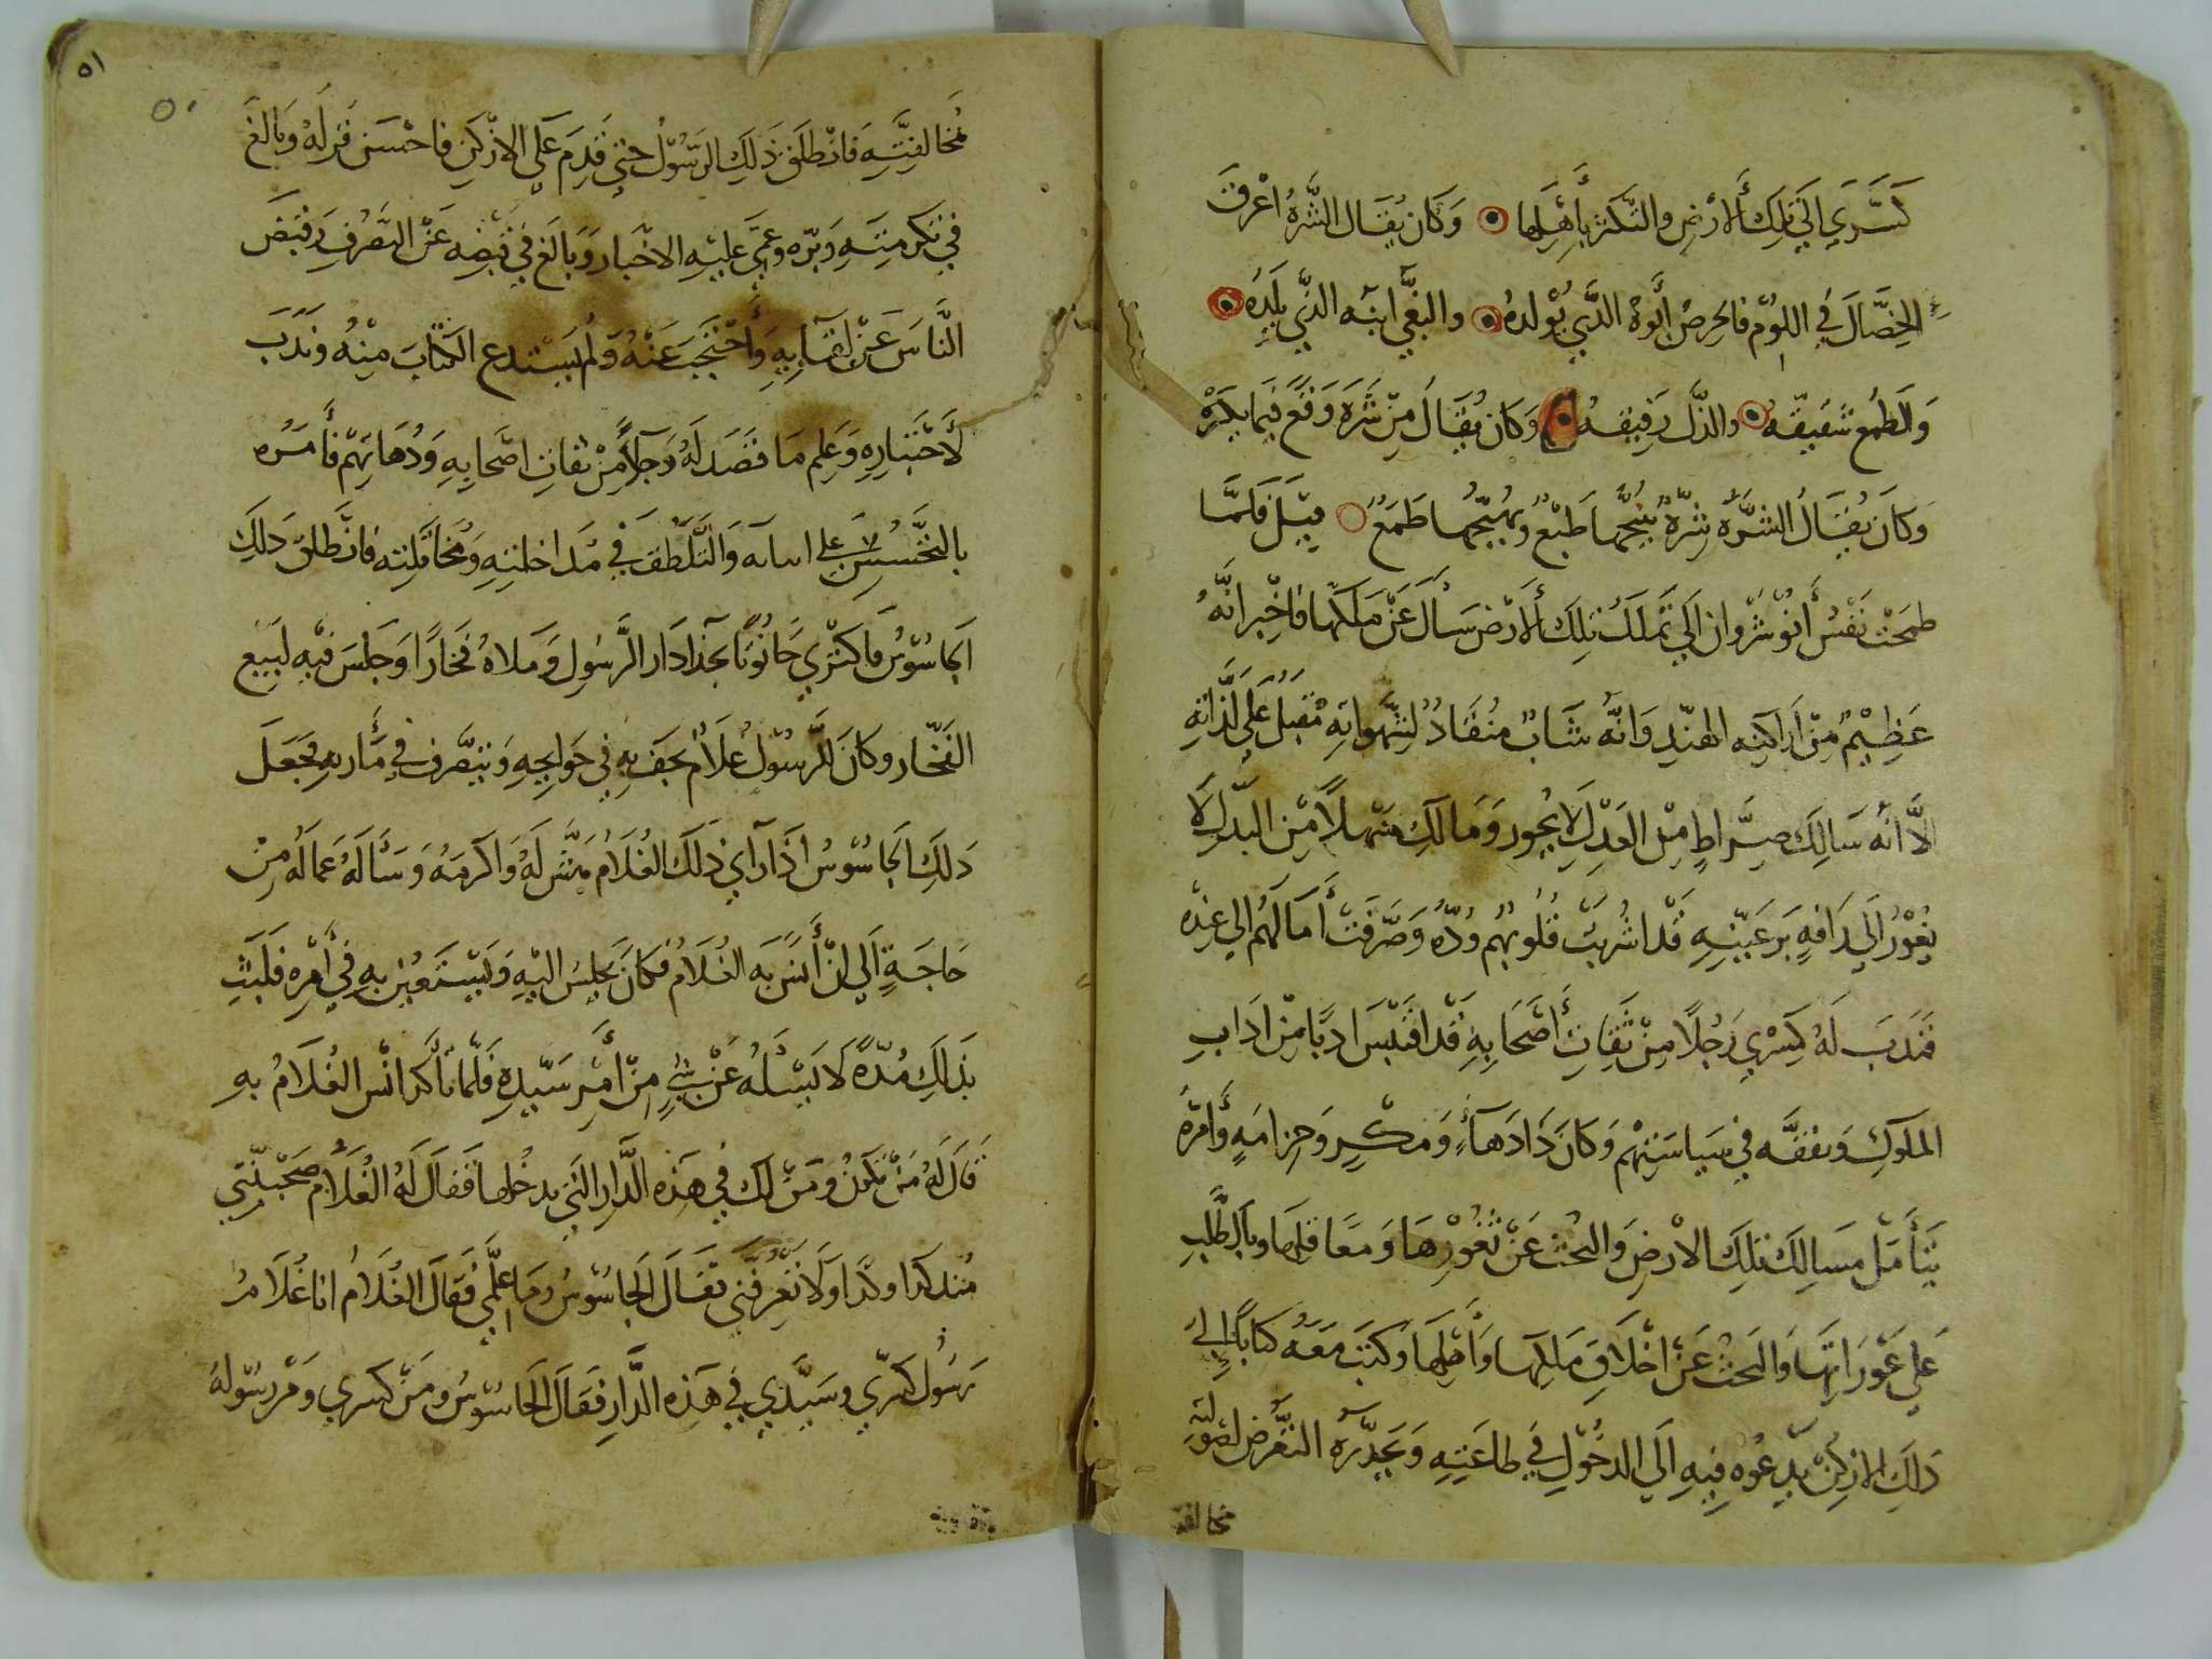 كسري الي تلك ألارض والتكثر بأهلها وكان يقال الشره اعرق
الخصال في اللوم فالحرص أبوه الذي يولده والبغي ابنه الذي يلده
والطمع شقيقه والذل رفيقه وكان يقال من شره وقع فيما يكره
وكان يقال الشره شرة ينتجها طبع ويهيجها طمع قيل فلما
طمحت نفس أنوشروان الي تملك تلك ألارض سأل عن ملكها فاخبر انه
عظيم من اراكنه الهند وانه شاب منقاد لشهواته مقبل علي لذاته
الا انه سالك صراط من العدل لا يجور ومالك منهلا من البذل لا
يغور الي رافه برعيته قد اشربت قلوبهم وده وصرفت أمالهم الي عنده
فندب له كسري رجلا من ثقات أصحابه قد اقتبس ادبا من اداب
الملوك وتفقه في سياستهم وكان ذا دهاء ومكر وحزامه وأمره
بتأمل مسالك تلك الارض والبحث عن ثغورها ومعاقلها وبالطلب
علي عوراتها والبحث عن اخلاق ملكها وأهلها وكتب معه كتابا إلي
ذلك الاركن يدعوه فيه الي الدخول في طاعته ويحذره التعرض لصولته
مخالفته
٥١
٥٠
مخالفته فانطلق ذلك الرسول حتي قدم علي الاركن فاحسن نزله وبالغ
في تكرمته وبره وعمي عليه الاخبار وبالغ في قبضه عن التصرف وقبض
الناس عن لقايه وأحتجب عنه ولم يستدع الكتاب منه وندب
لأختباره وعلم ما قصد له رجلا من ثقات اصحابه ودهاتهم فأمره
بالتجسس علي والتلطف في مداخلته ومخاتلته فانطلق ذلك
الجاسوس فاكتري حانوتا بحذا دار الرسول وملاه فخارا وجلس فيه لبيع
الفخار وكان للرسول غلام يحف به في حوايجه ويتصرف في مأربه فجعل
ذلك الجاسوس اذا رآي ذلك الغلام هش له واكرمه وسأله عما له من
حاجة الي ان أنس به الغلام فكان يجلس اليه ويستعين به في أمره فلبث
بذلك مدة لا يسئله عن شي من أمر سيده فلما تأكد انس الغلام به
قال له من تكون ومن لك في هذه الدار التي يدخلها فقال له الغلام صحبتني
منذ كذا وكذا ولا تعرفني فقال الجاسوس وما علمي فقال الغلام انا غلام
رسول كسري وسيدي في هذه الدار فقال الجاسوس ومن كسري ومن رسوله